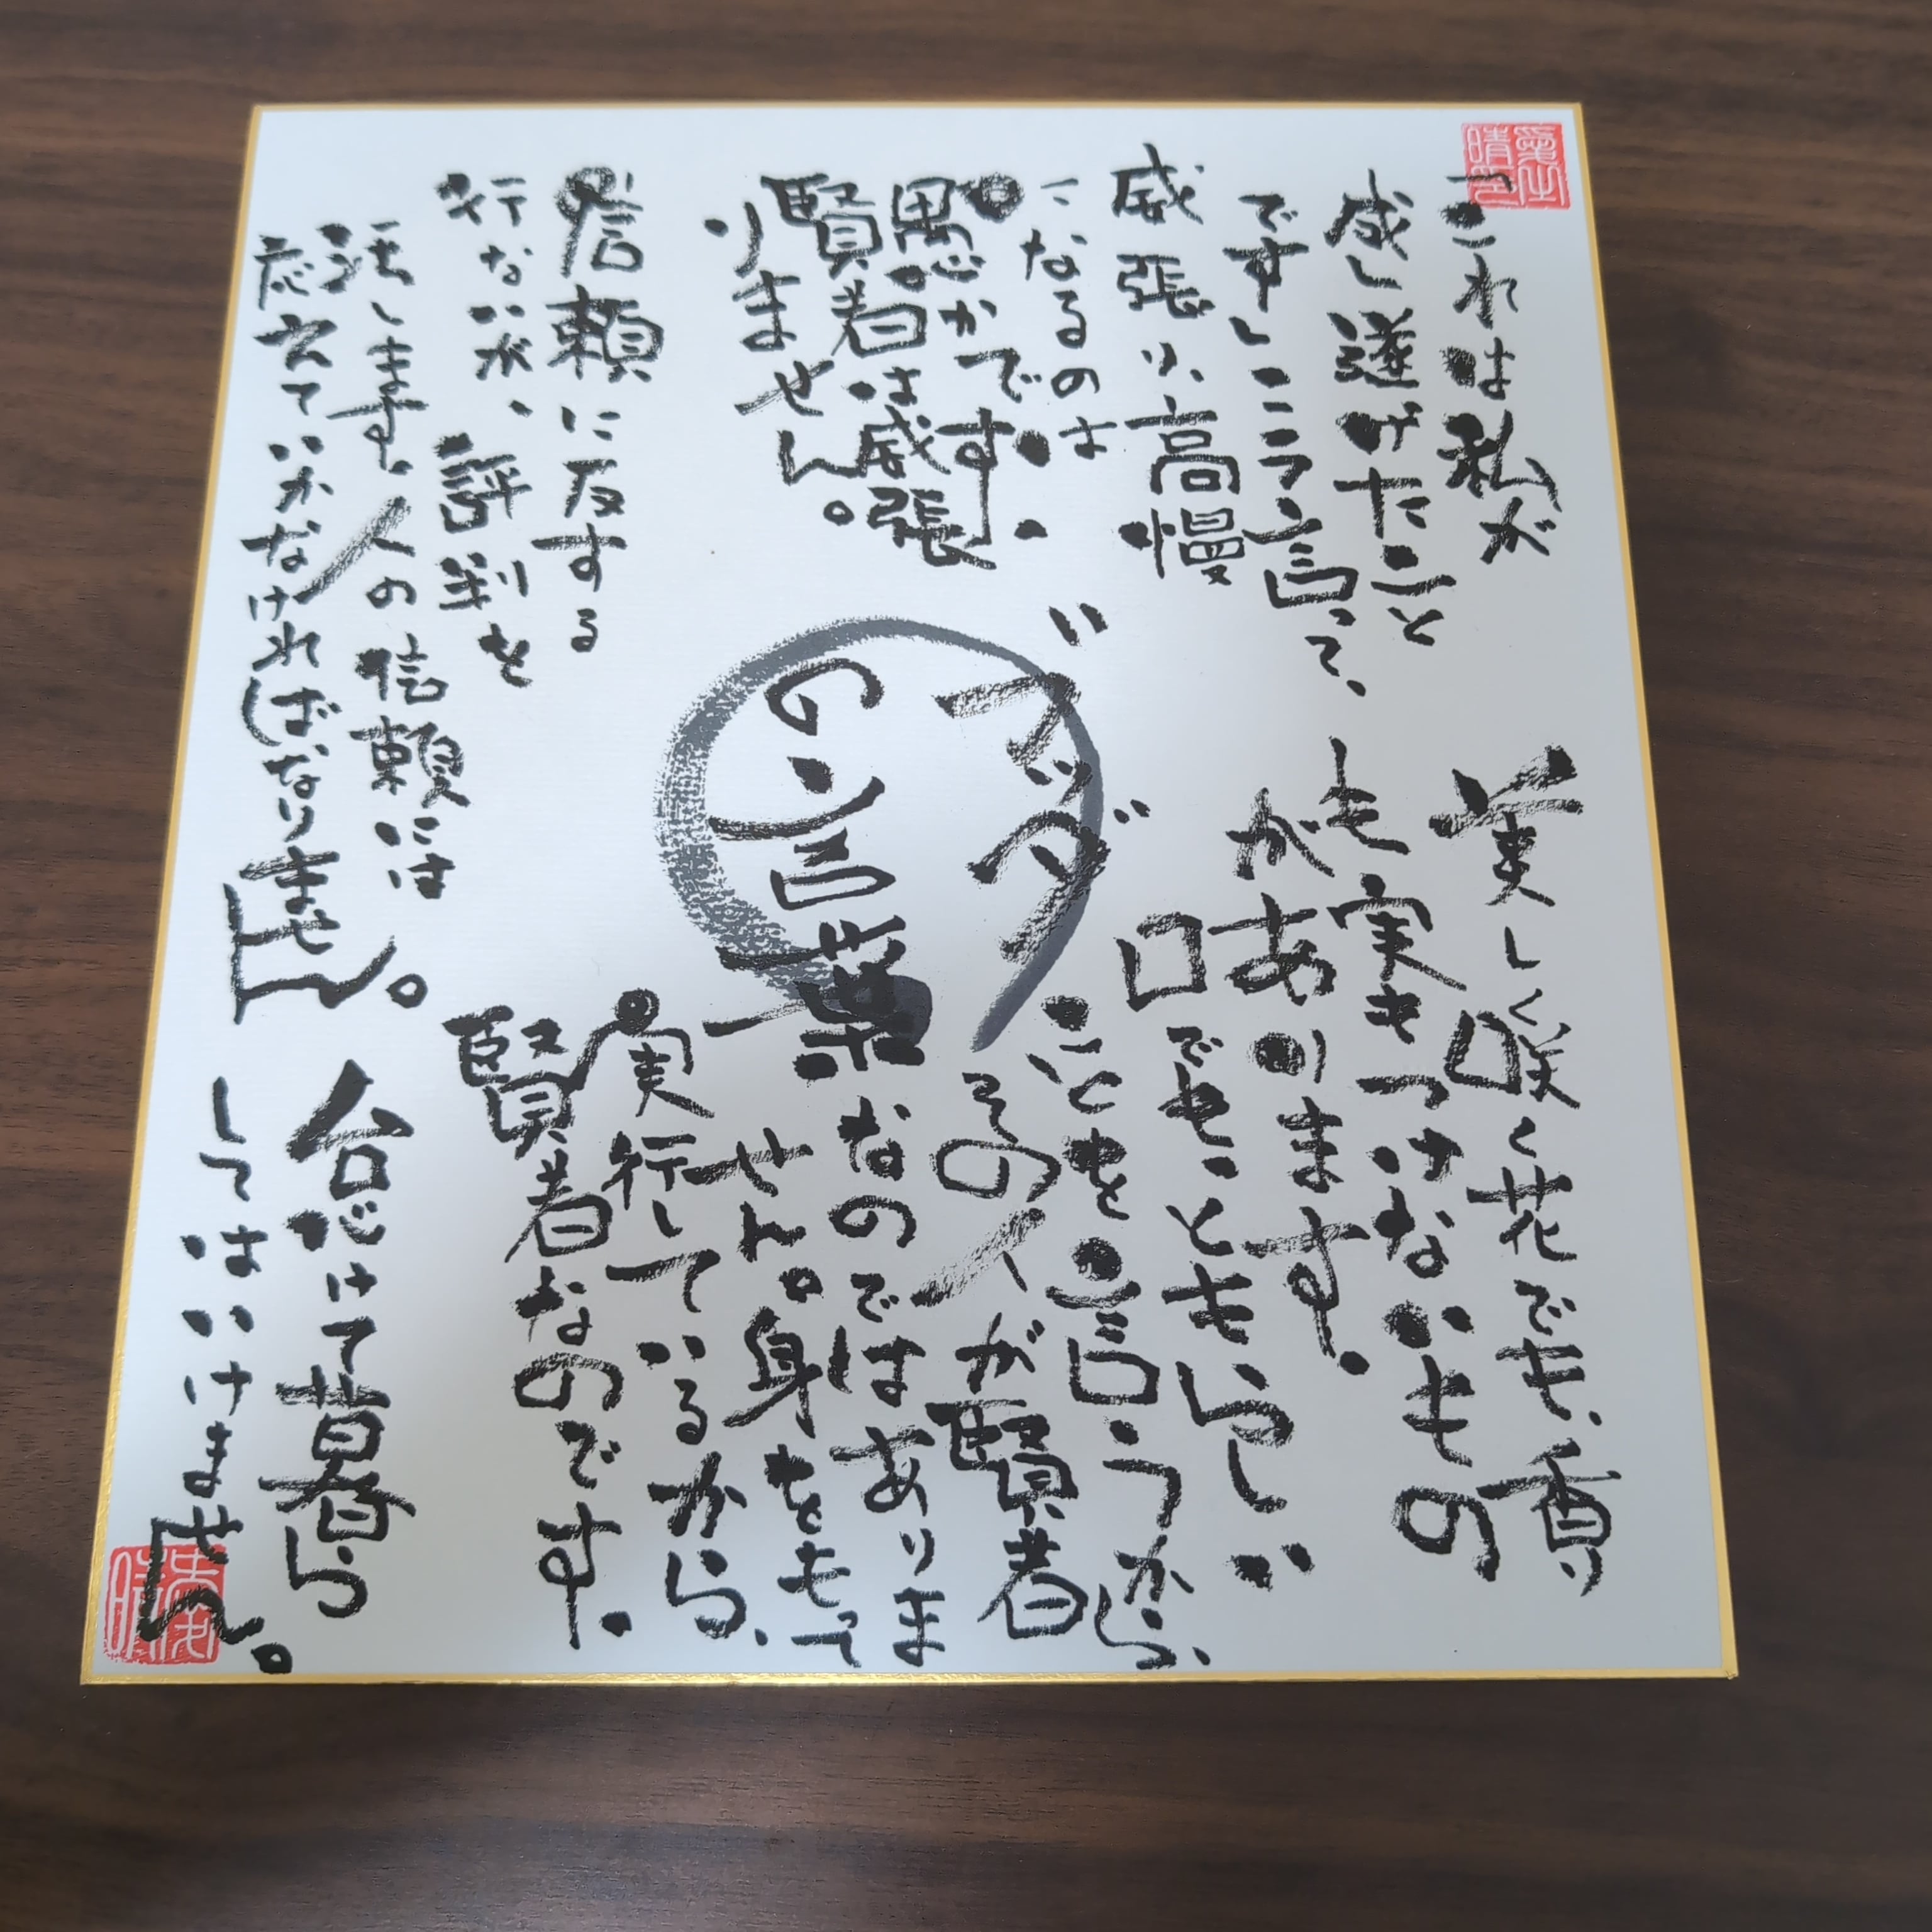 「これは私が
成し遂げたこと
です」こう言って、
威張り、高慢
になるのは
愚かです。
賢者は威張
りません。
美しく咲く花でも、香り
も実もつけないもの
があります。
口でもっともらしい
ことを言うから、
その人が賢者
なのではありま
せん。身をもって
実行しているから、
賢者なのです。
ブッダ
の言葉
信頼に反する
行ないが、評判を
汚します。人の信頼には
応えていかなければなりません。
怠けて暮ら
してはいけません。